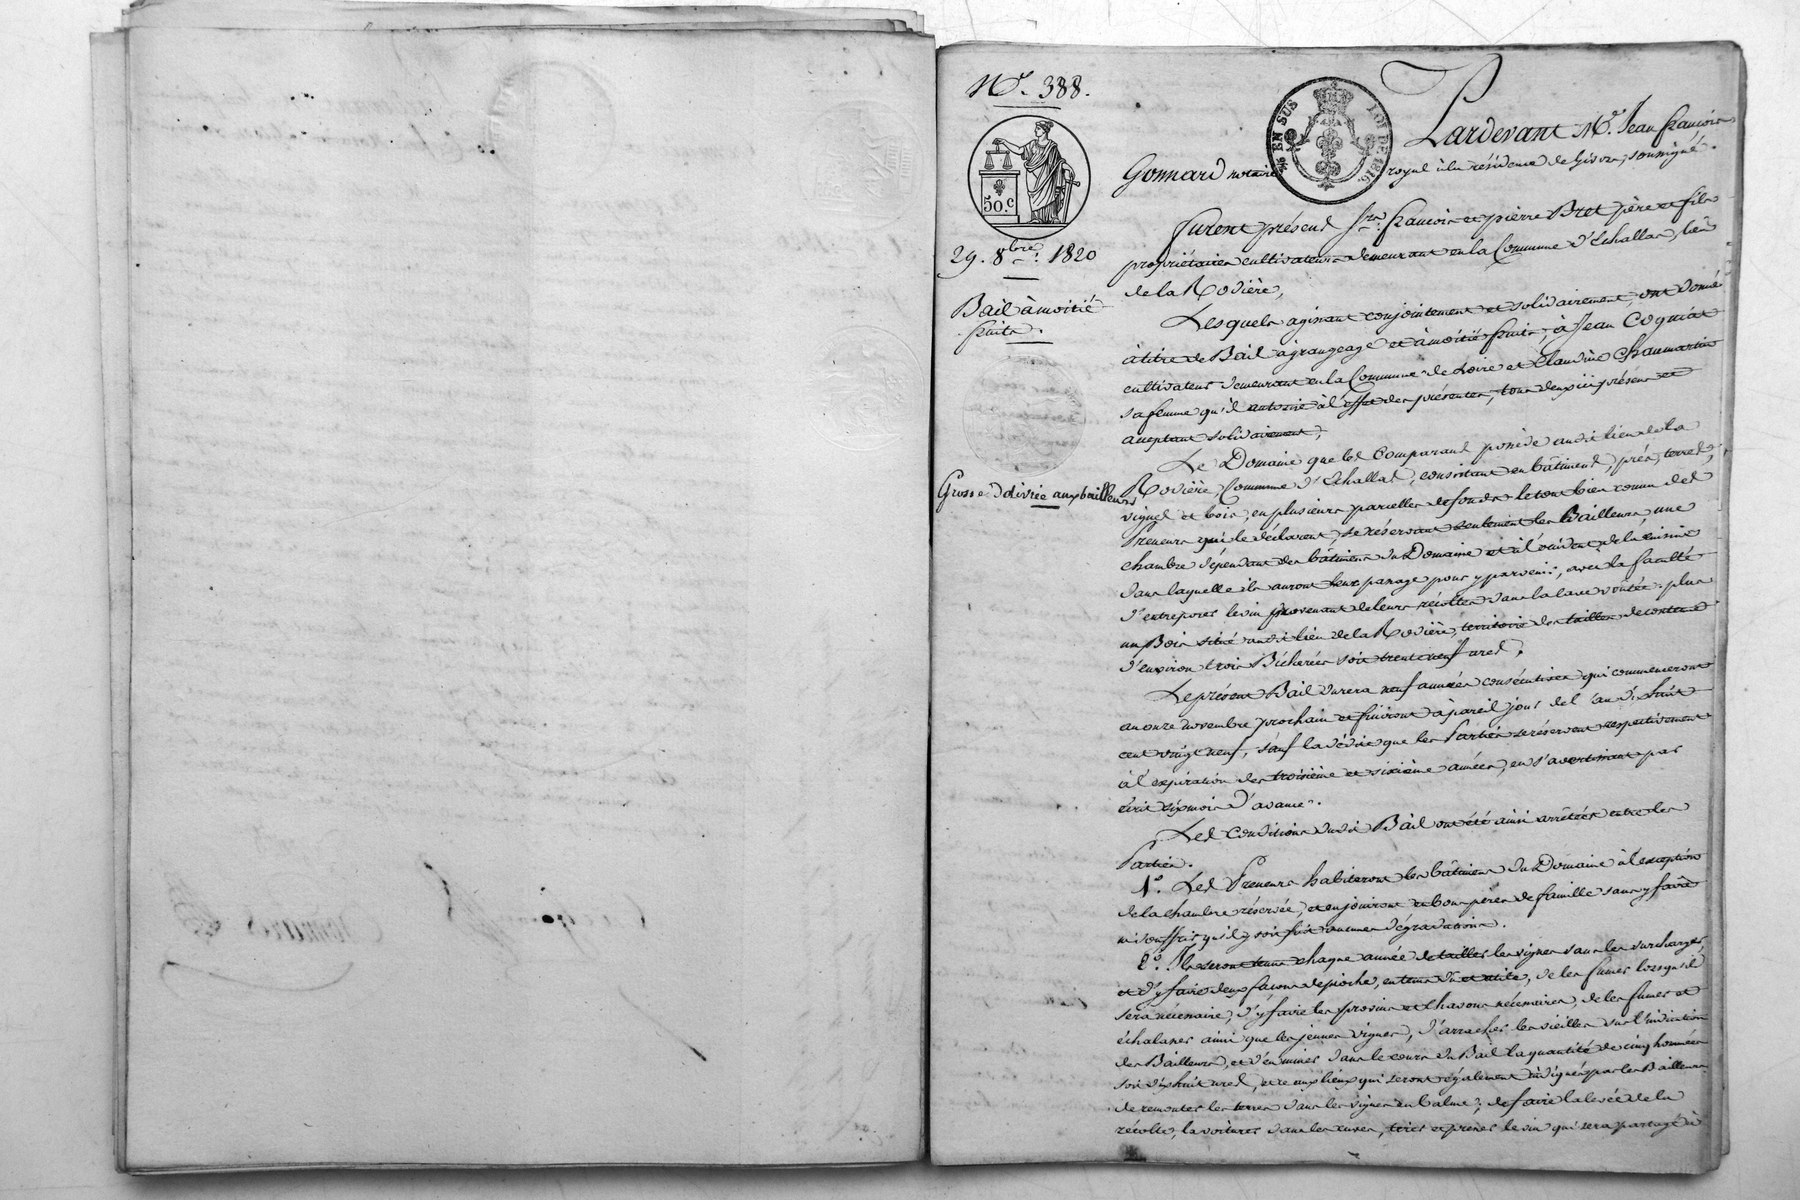 N°. 388.
50.c
29. 8bre. 1820
Bail à moitié
fruits.
Grosse délivrée aux bailleurs
EN SUS
LOI DE 1816.
Pardevant Me. Jean françois
Gonnard notaire royal à la résidence de Givors, soussigné.
furent présens Srs. françois et pierre Bret père et fils
propriétaires cultivateurs demeurant en la Commune d'Echallas, lieu
de la Rodière,
Lesquels agissant conjointement et solidairement, ont donné
à titre de Bail à grangeage et à moitié fruits, à Jean Cognat
cultivateur demeurant en la Commune de Loire et Claudine Chaumartin
sa femme qu'il autorise à l'effet des présentes, tous deux ici présens et
acceptant solidairement,
Le Domaine que les Comparans possède au dit lieu de la
Rodière, Commune d'Echallas, consistant en bâtimens, prés, terres,
vignes et bois, en plusieurs parcelles de fonds le tout bien connu des
Preneurs qui le déclarent, se réservant seulement les Bailleurs, une
chambre dépendant des bâtimens du Domaine et à l'occident de la cuisine
dans laquelle ils auront leur passage pour y parvenir, avec la faculté
d'entreposer le vin provenant de leurs récoltes dans la cave voûtée; plus
un Bois situé au dit lieu de la Rodière, territoire des tailles de contenu
d'environ trois Bicherées soit trente neuf ares.
Le présent Bail durera neuf années consécutives qui commenceront
au onze novembre prochain et finiront à pareil jour de l'an dix huit
cent vingt neuf, sauf la dédite que les Parties se réservent respectivement
à l'expiration des troisième et sixième années, en s'avertissant par
écrit six mois d'avance.
Les Conditions dudit Bail ont été ainsi arrêtées entre les
Parties.
1°. Les Preneurs habiteront les bâtimens du Domaine à l'exception
de la chambre réservée, et en jouiront en bons pères de famille sans y faire
ni souffrir qu'il y soit fait aucunes dégradations.
2°. Ils seront tenus chaque année de tailler les vignes sans les surcharger,
et d'y faire deux façons de pioche, en tems du et utile, de les fumer lorsqu'il
sera nécessaire, d'y faire les provins et chavons nécessaires, de les fumer et
échalasser ainsi que les jeunes vignes, d'arracher les vieilles sur l'indication
des Bailleurs, et d'en miner dans le cours du Bail la quantité de cinq hommées
soit dix huit ares, et ce aux lieux qui seront également indiqués par les Bailleurs
de remonter les terres dans les vignes en balme; de faire la levée de la
récolte, la voiturer dans les cuves, tirer et presser le vin qui sera partagé à